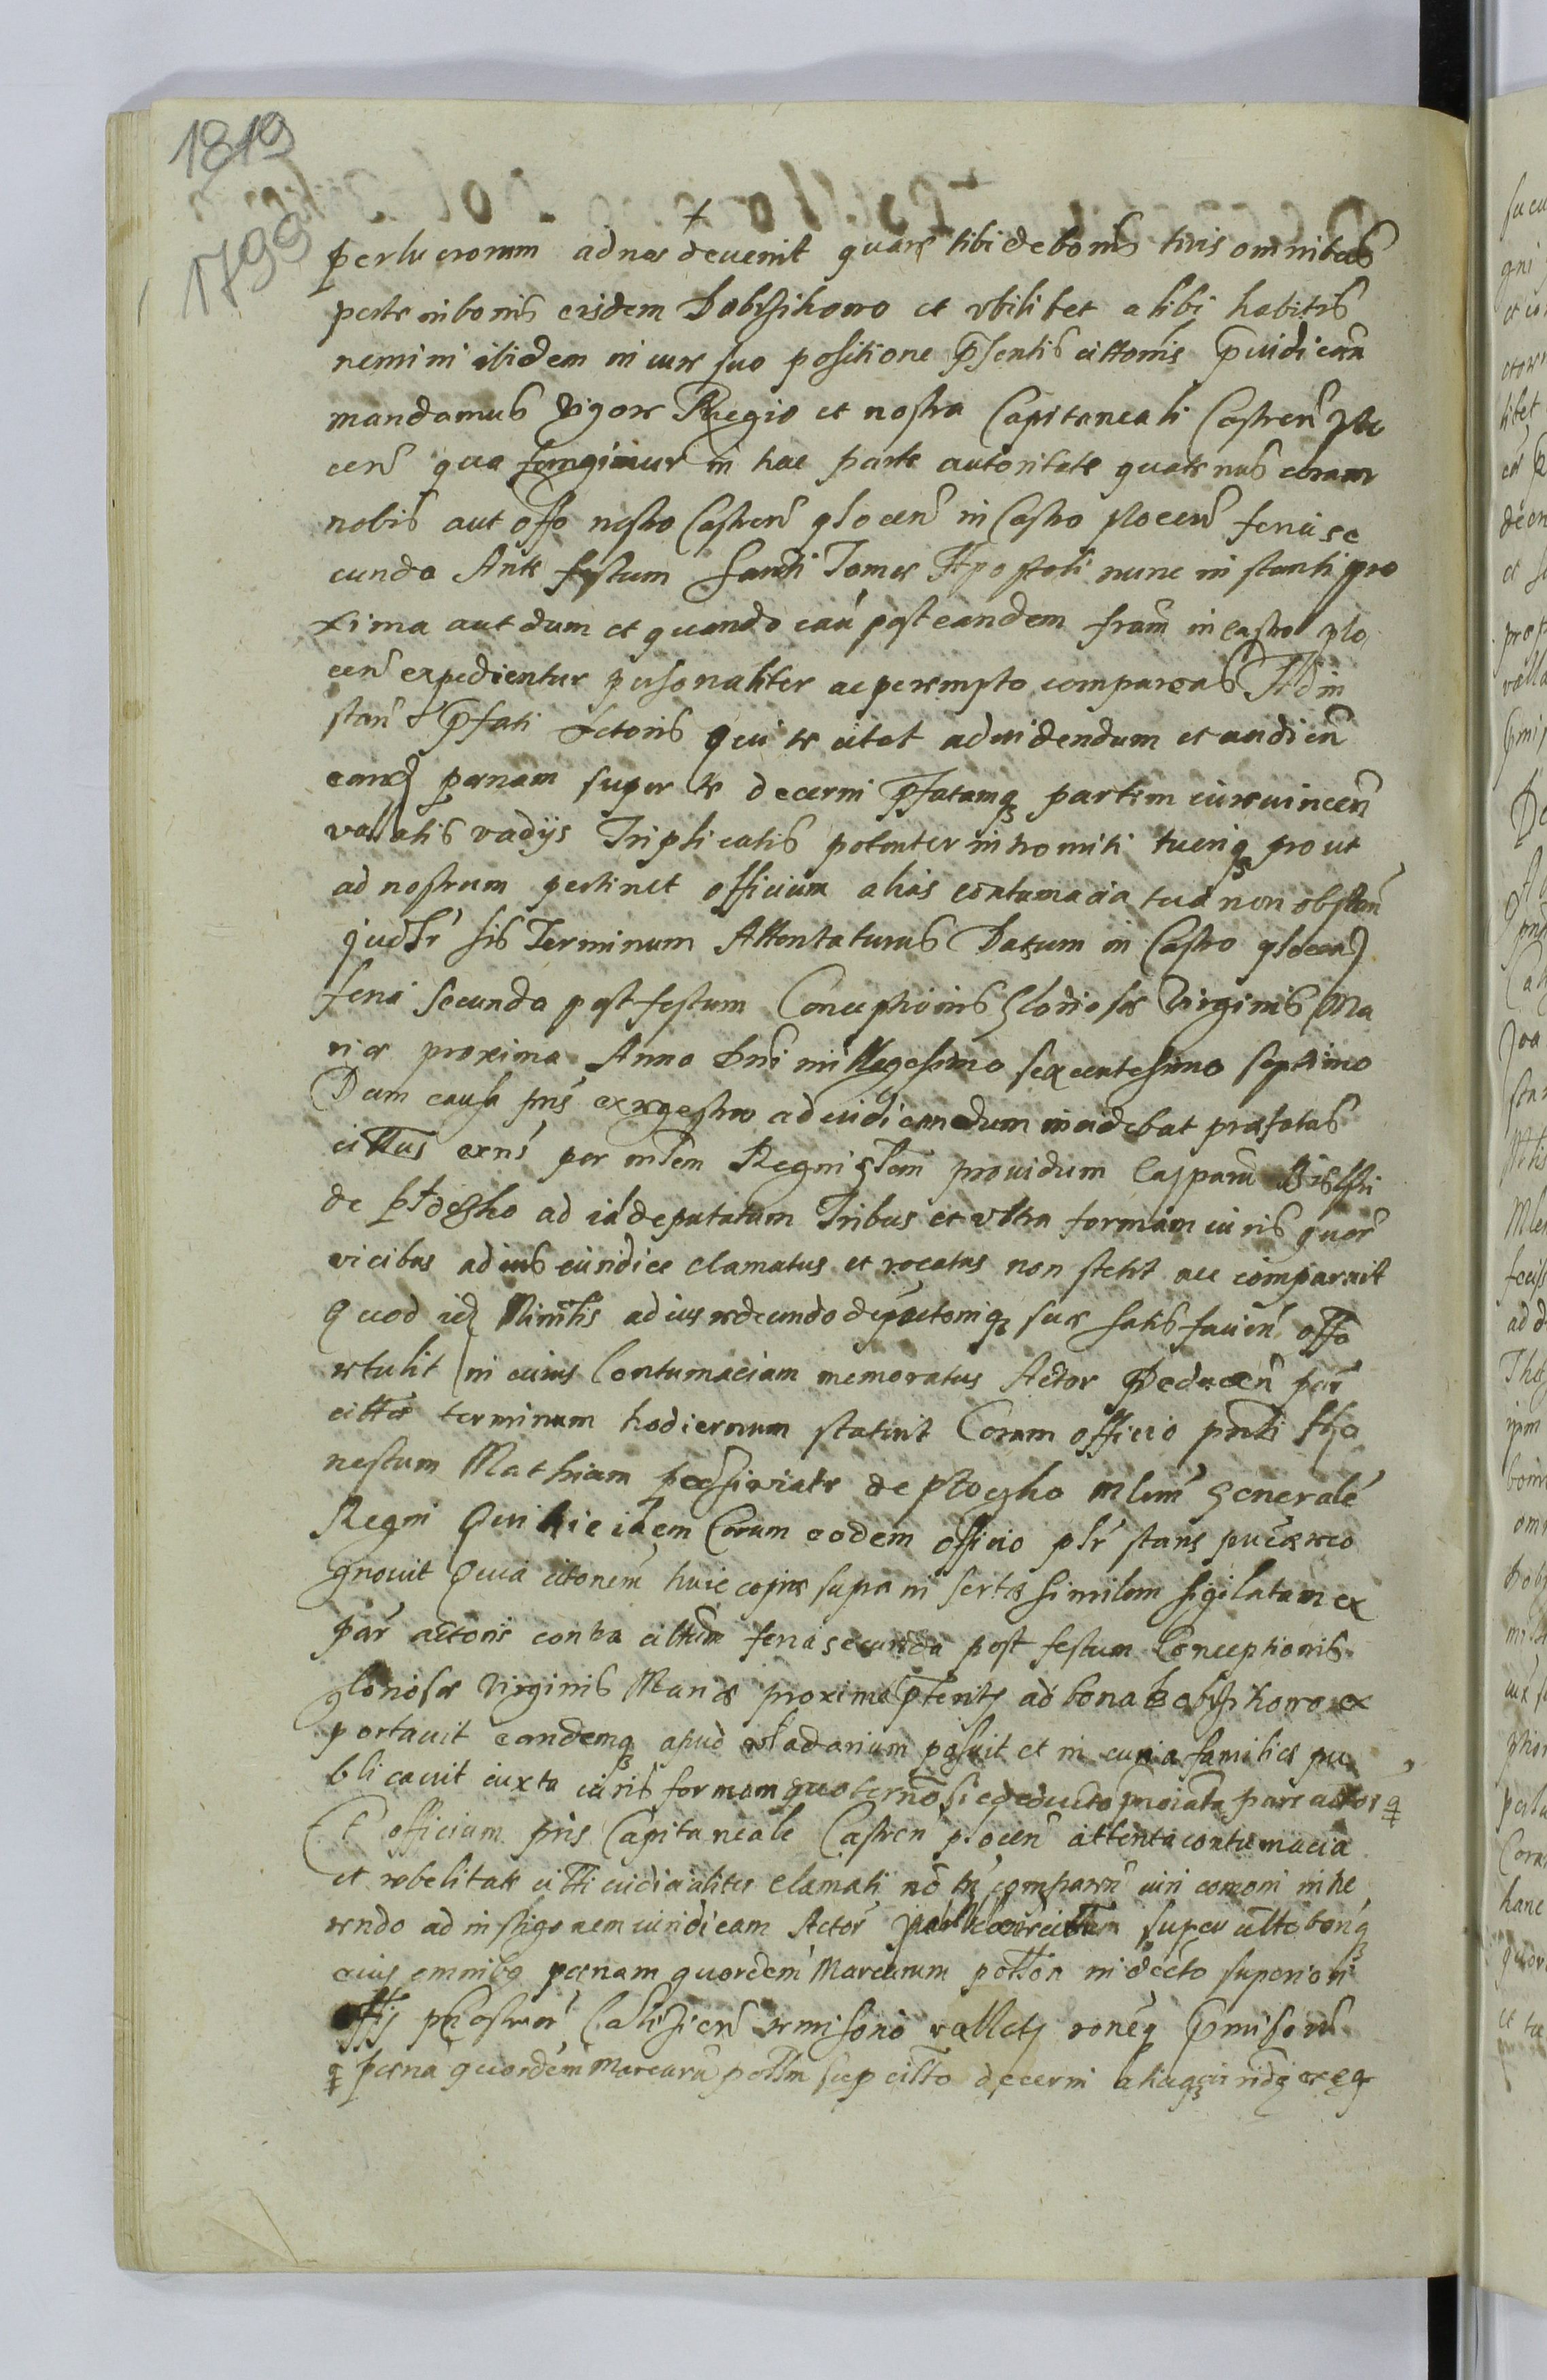 1819
1799
perlucrorum ad nos devenit quare tibi de bonis tuis omnibus
parte in bonis eisdem Dobrsikowo et ubilibet alibi habitis
nemini ibidem in iure suo positione pſentis cittonis pſuidican
mandamus vigore Regio et nostra Capitaneali Castren plo
cen qua fungimur in hac parte autoritate quatenus coram
nobis aut offo nostro Castren plocen in Castro plocen feria se
cunda Ante festum Sancti Tomæ Apostoli nunc instanti pro
xima aut dum et quando cau post eandem fram in castro plo
cen expedientur personaliter ac perempto compareas Ad in
stan pfati Actoris qui te citat ad videndum et audien
eand pænam super te decerni pfatamq partem iure vincen
vallatis vadys Triplicatis potenter intromitti tueriq prout
ad nostrum pertinet officium alias contumacia tua non obstan
judlr sis Terminum Attentaturus Datum in Castro plocen
feria secunda post festum Conceptionis Gloriosæ Virginis Ma
riæ proxima Anno Dni millegesimo sexcentesimo septimo
Dum causa pns ex regestro ad iudicandum incidebat præfatus
cittus exns per mlem Regni glem providum Casparu
de ad id deputatum Tribus et ultra formam iuris quor
vicibus ad ius iuridice clamatus et vocatus non stetit nec comparuit
Quod id Ministis ad ius redeundo suæ satisfacien offo
retulit in cuius Contumaciam memoratus Actor Deducen par
cittæ terminum hodiernum statuit Coram officio pnti Ho
nestum Mathiam de Ploczko mlem Generale
Regni Qui hic idem Coram eodem officio plr stans reco
gnovit Quia citonem huic copiæ supra insertæ similem sigilatam ex
par actoris contra cittum feria secunda post festum Conceptionis
gloriosæ Virginis Mariæ proxime pterits ad bona Dobrsikowo ex
portavit eandemq apud wladarium posuit et in curia familiæ pu
blicavit iuxta iuris formam quo termo sic deducto pars actor
Et officium pns Capitaneale Castren plocen attenta contumacia
et rebelitate citti iudicialiter clamati no tn comparen iuri comoni inhe
rendo ad instigonem iuridicam Actor super citto bonq
eius omnibq pænam quordem Marcarum potton in deeto superiori
offy remisorio vallats pmisorn
pæna quordem marcaru pottm sup citto decerni